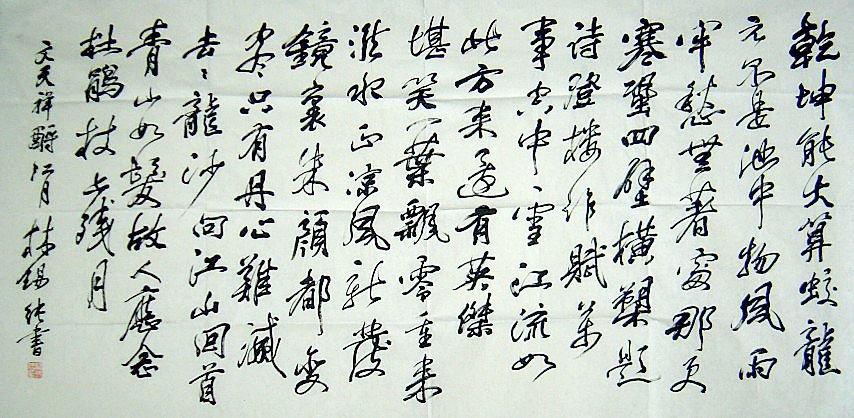 乾坤能大算蛟龍
元不是池中物風雨
牢愁無著處那更
寒蛩四壁橫槊題
詩登樓作賦萬
事空中雪江流如
此方來還有英傑
堪笑一葉飄零重來
淮水正涼風新發
鏡裏朱顏都變
盡只有丹心難滅
去〻龍沙向江山回首
青山如髮故人應念
杜鵑枝上殘月
文天祥酹江月 林錫純書